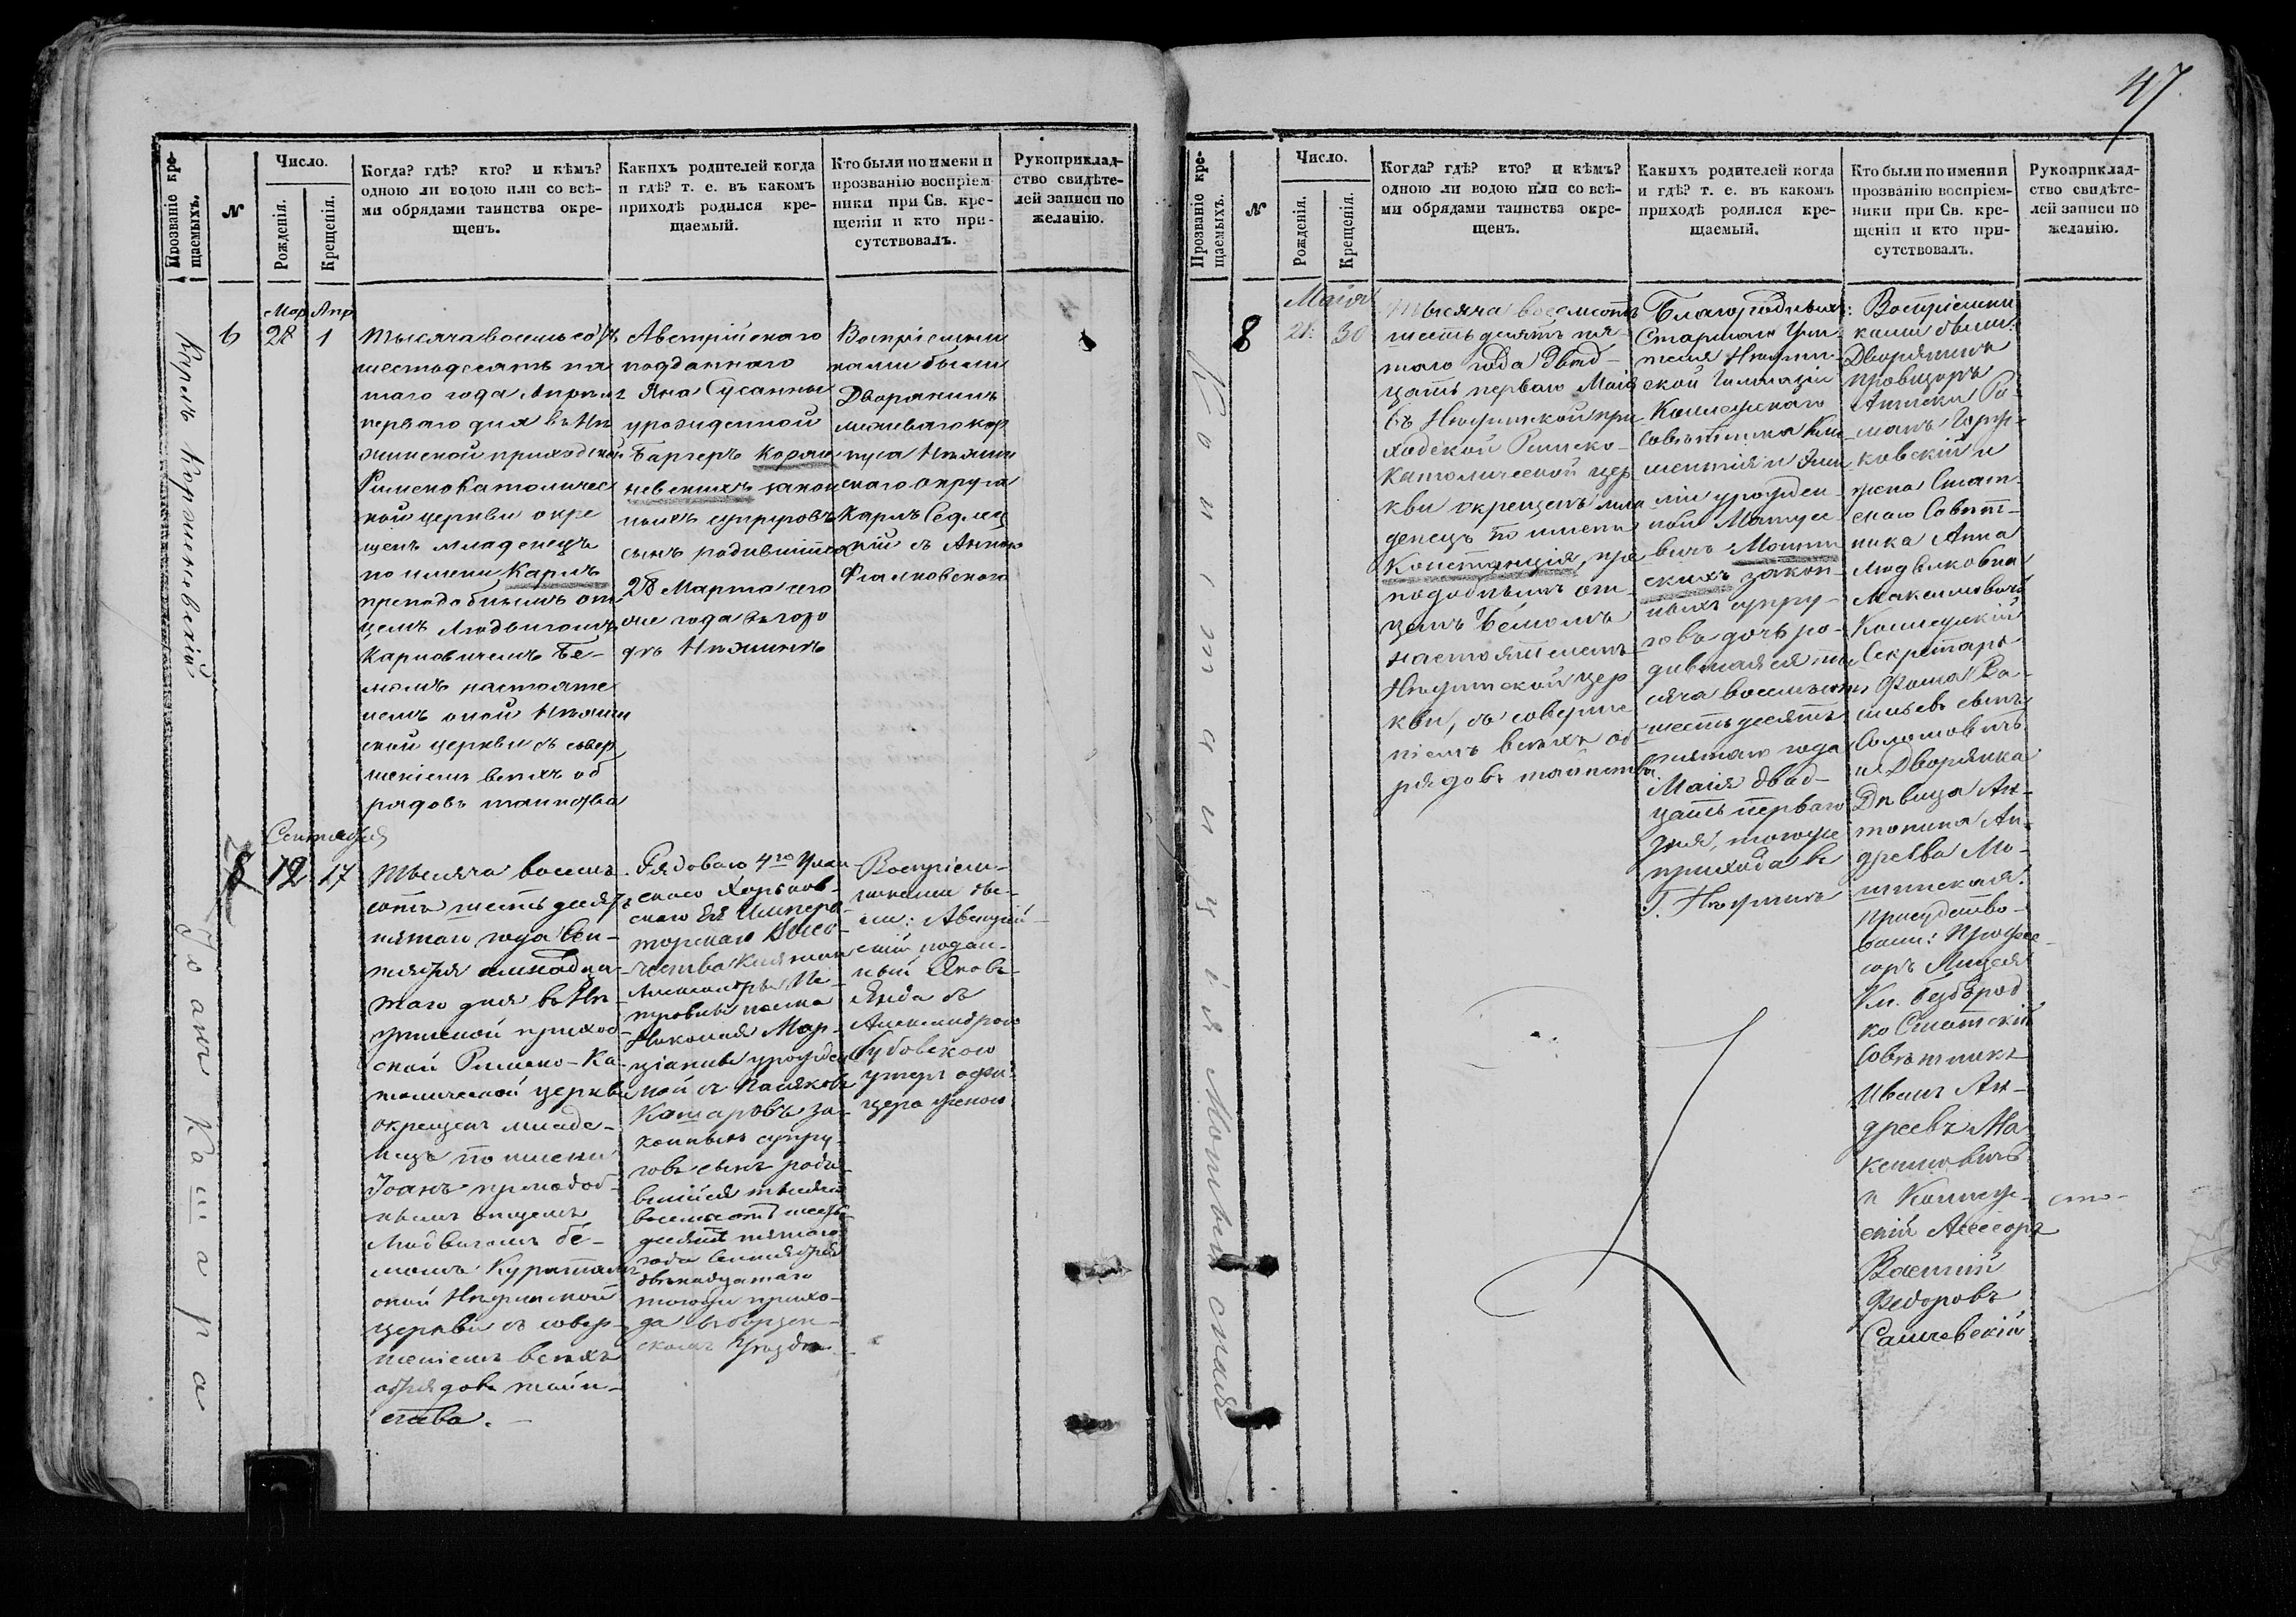 47
Прозваніе кре-
щаемыхъ.
№
Число.
Рожденія.
Крещенія.
Когда? гдѣ? кто? и кѣмъ?
одною ли водою или со всѣ-
ми обрядами таинства окре-
щенъ.
Какихъ родителей когда
и гдѣ? т. е. въ какомъ
приходѣ родился кре-
щаемый.
Кто были по имени и
прозванію воспріем-
ники при Св. кре-
щеніи и кто при-
сутствовалъ.
Рукоприклад-
ство свидѣте-
лей записи по
желанію.
Карлъ Коржиневскій
6
Мар Апр
28 1
Тысяча восемьсотъ
шестьдесятъ пя
таго года Апрѣля
перваго дня въ Нѣ
жинской приходской
Римско Католичес
кой церкви окре
щенъ младенецъ
по имени Карлъ
преподобнымъ от
цемъ Людвигомъ
Карловичемъ Бе-
момъ настояте
лемъ оной Нѣжин
ской церкви съ совер
шеніемъ всѣхъ об
рядовъ таинства
Австрійскаго
подданнаго
Яна Сусанны
урожденной
Баргеръ Коржи
невскихъ закон
ныхъ супруговъ
сынъ родившійся
28 Марта сего
же года въ горо
дѣ Нѣжинѣ
Воспріемни
ками были
Дворянинъ
межеваго кор
пуса Нѣжин
скаго округа
Карлъ Седлец
кій съ Анною
Фіалковскою
Іоанъ Кашара
Сентября
12 17
Тысяча восемь
сотъ шестьдесятъ
пятаго года Сен-
тября семнадца-
таго дня въ Нѣ-
жинской приход-
ской Римско-Ка-
толической церкви
окрещенъ младе-
нецъ по имени
Іоанъ преподоб-
нымъ отцемъ
Людвигомъ Бе-
момъ Куратомъ
оной Нѣжинской
церкви съ совер-
шеніемъ всѣхъ
обрядовъ таин-
ства.
Рядоваго 4го Улан
скаго Харьков-
скаго Ея Импера-
торскаго Высо-
чества Княгини
Александры Пе
тровны полка
Николая Мар-
ціанны урожден
ной
Кашаровъ за-
конныхъ супру-
говъ сынъ роди-
вшійся тысяча
восемьсотъ шесть-
десятъ пятаго
года Сентября
двѣнадцатаго
того же прихо-
да въ Борзен-
скомъ Уѣздѣ
Воспріем-
никами бы-
ли: Австрій-
скій поддан-
ный Яковъ
съ
Александрою
унтеръ офи-
цера женою
Прозваніе кре-
щаемыхъ.
№
Число.
Рожденія.
Крещенія.
Когда? гдѣ? кто? и кѣмъ?
одною ли водою или со всѣ-
ми обрядами таинства окре-
щенъ.
Какихъ родителей когда
и гдѣ? т. е. въ какомъ
приходѣ родился кре-
щаемый.
Кто были по имени и
прозванію воспріем-
ники при Св. кре-
щеніи и кто при-
сутствовалъ.
Рукоприклад-
ство свидѣте-
лей записи по
желанію.
Констанція
8
Маія
21 30
Тысяча восемьсотъ
шестьдесятъ пя-
таго года Двад-
цать перваго Маія
въ Нѣжинской при
ходской Римско-
Католической цер
кви окрещенъ мла
денецъ по имени
Констанція, пре
подобнымъ от-
цемъ Бемомъ
настоятелемъ
Нѣжинской цер
кви, съ соверше
ніемъ всѣхъ об-
рядовъ таинства.
Благородныхъ:
Старшаго Учи-
теля Нѣжин-
ской Гимназіи
Коллежскаго
Совѣтника Кли
ментія и Эми
ліи урожден-
ной
скихъ закон-
ныхъ супру-
говъ дочь ро-
дившаяся ты
сяча восемьсотъ
шестьдесятъ
пятаго года
Маія двад-
цать перваго
дня, того же
прихода въ
Г. Нѣжинѣ
Воспріемни
ками были:
Дворянинъ
провизоръ
Аптеки Ро-
манъ
ковскій и
жена Стат-
скаго Совѣт-
ника Анна
Людвиковна
Максимовичъ
Коллежскій
Секретарь
Фома Ва-
сильевъ сынъ
Соломовичъ
и Дворянка
Дѣвица Ан-
тонина Ан-
дреева
Присудство-
вали: Профес-
соръ Лицея
Кн. Безбород
ко Статскій
Совѣтникъ
Иванъ Ан-
дреевъ Ма
ксимовичъ
и Коллеж-
скій Асессоръ
Василій
Федоровъ